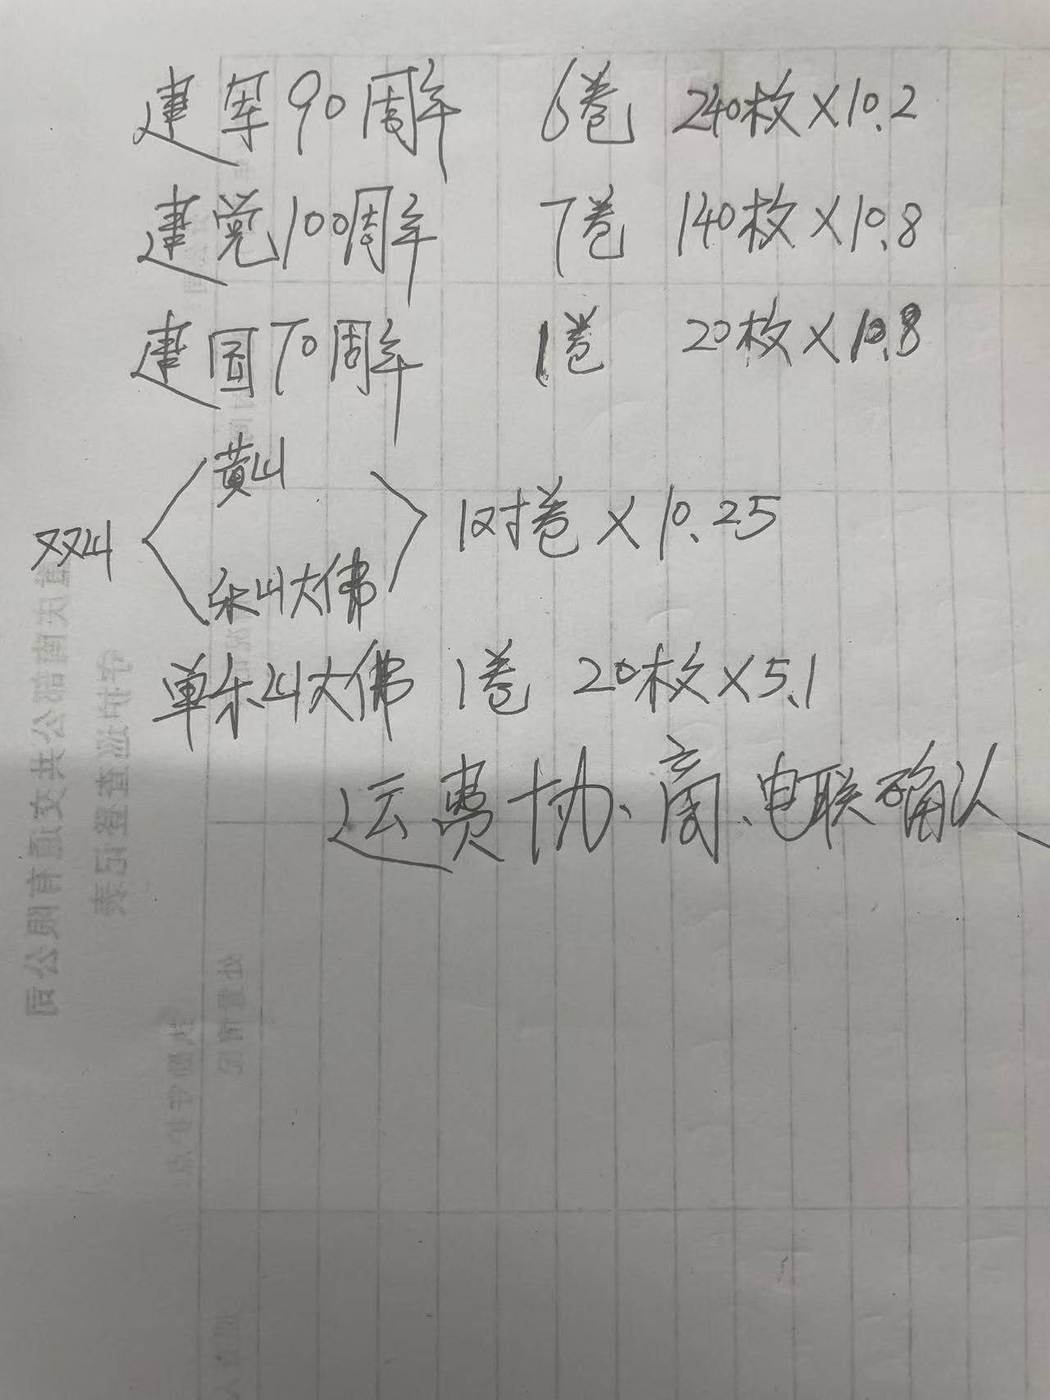 建军90周年 6卷 240枚×10.2
建党100周年 7卷 140枚×10.8
建国70周年 1卷 20枚×10.8
黄山
双山 1对卷×10.25
乐山大佛
单乐山大佛 1卷 20枚×5.1
运费协、商、电联确认、